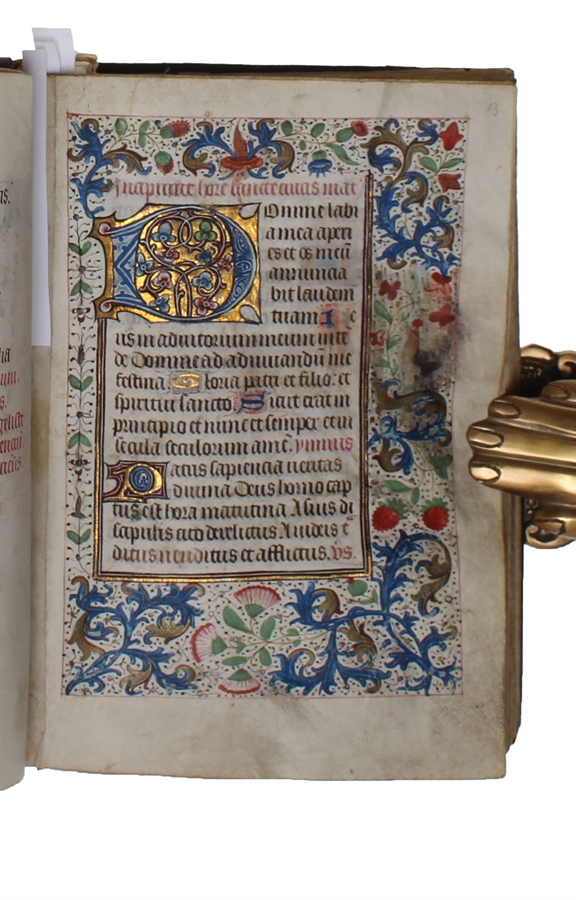 13
Incipiunt hore sancte crucis mat
Domine labi
a mea aperi
es et os meū
annuncia
bit laudem
tuam. De
us in adiutorium meum inte
de Domine ad adiuvandū me
festina. Gloria patri et filio: et
spiritui sancto Sicut erat in
principio et nunc et semper et in
secula seculorum amē. ymnus
Patris sapiencia veritas
divina Deus homo cap
tus est hora matutina A suis di
scipulis cito derelictus A iudeis t̄
ditus venditus et afflictus. vs.